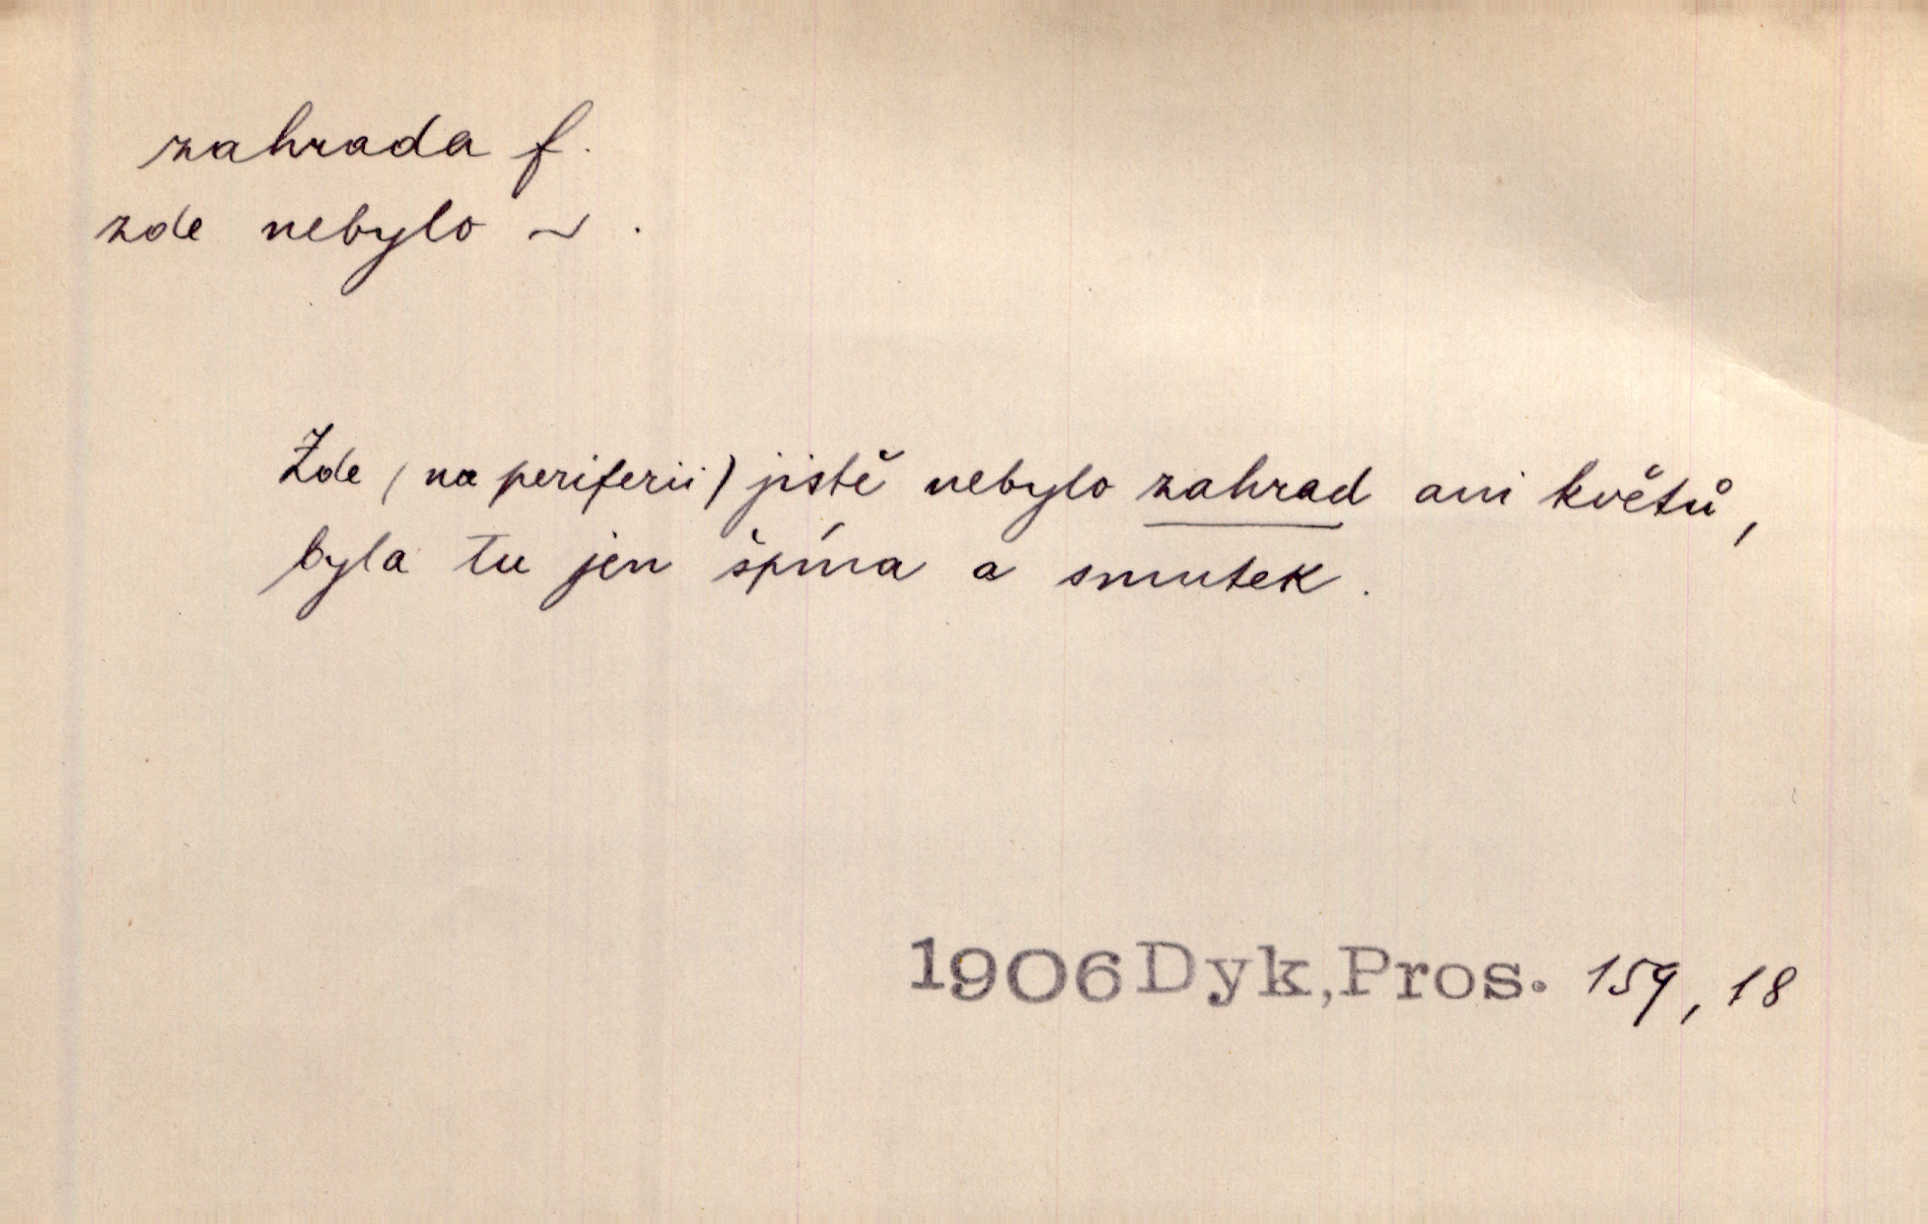 zahrada f.
zde nebylo ~.
Zde (na periferii) jistě nebylo zahrad ani květů,
byla tu jen špína a smutek.
1906 Dyk, Pros. 159, 18